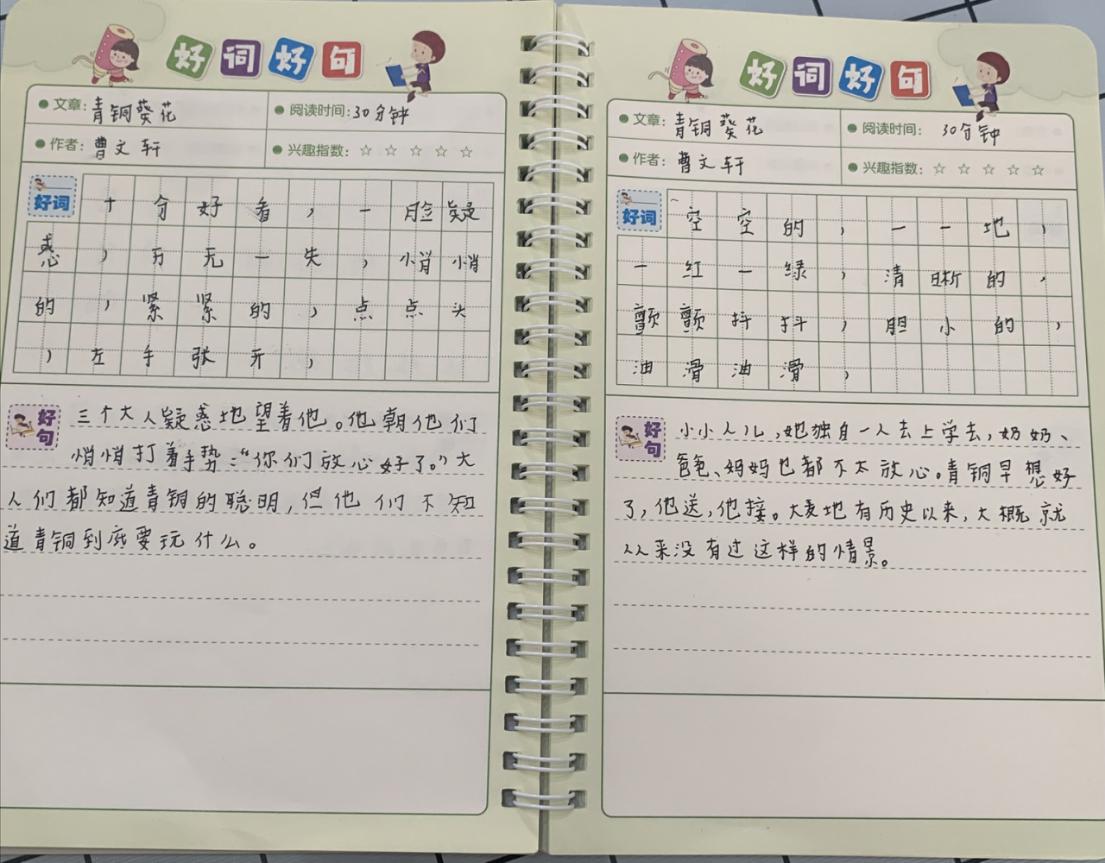 好词好句
文章：青铜葵花
阅读时间：30分钟
作者：曹文轩
兴趣指数：☆ ☆ ☆ ☆ ☆
好词
十分好看，一脸疑
惑，万无一失，悄悄
的，紧紧的，点点头
，左手张开，
好句
三个大人疑惑地望着他。他朝他们
悄悄打着手势："你们放心好了。"大
人们都知道青铜的聪明，但他们不知
道青铜到底要玩什么。
好词好句
文章：青铜葵花
阅读时间：30分钟
作者：曹文轩
兴趣指数：☆ ☆ ☆ ☆ ☆
好词
空空的，一一地，
一红一绿，清晰的，
颤颤抖抖，胆小的，
油滑油滑，
好句
小小人儿，她独自一人去上学去，奶奶、
爸爸、妈妈也都不太放心。青铜早想好
了，他送，他接。大麦地有历史以来，大概就
从来没有过这样的情景。